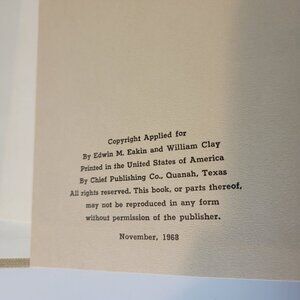 Copyright Applied for
By Edwin M. Eakin and William Clay
Printed in the United States of America
By Chief Publishing Co., Quanah, Texas
All rights reserved. This book, or parts thereof,
may not be reproduced in any form
without permission of the publisher.
November, 1968